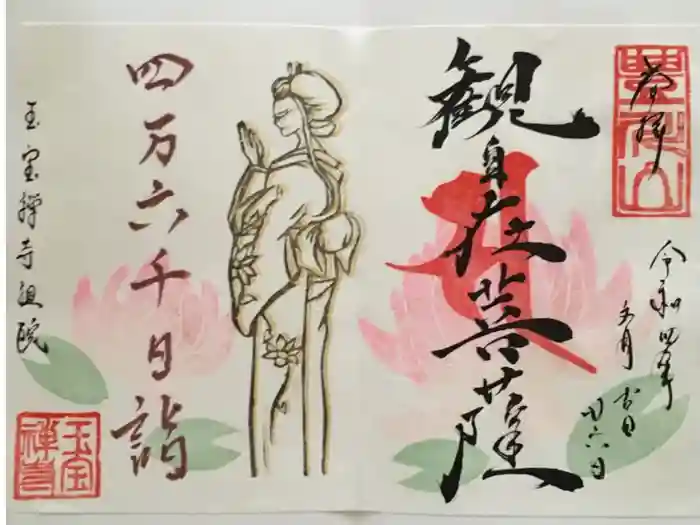 奉拝
令和四年
文月 吉日
廿六日
観自在菩薩
四万六千日詣
玉宝禅寺祖院
玉宝
禅寺